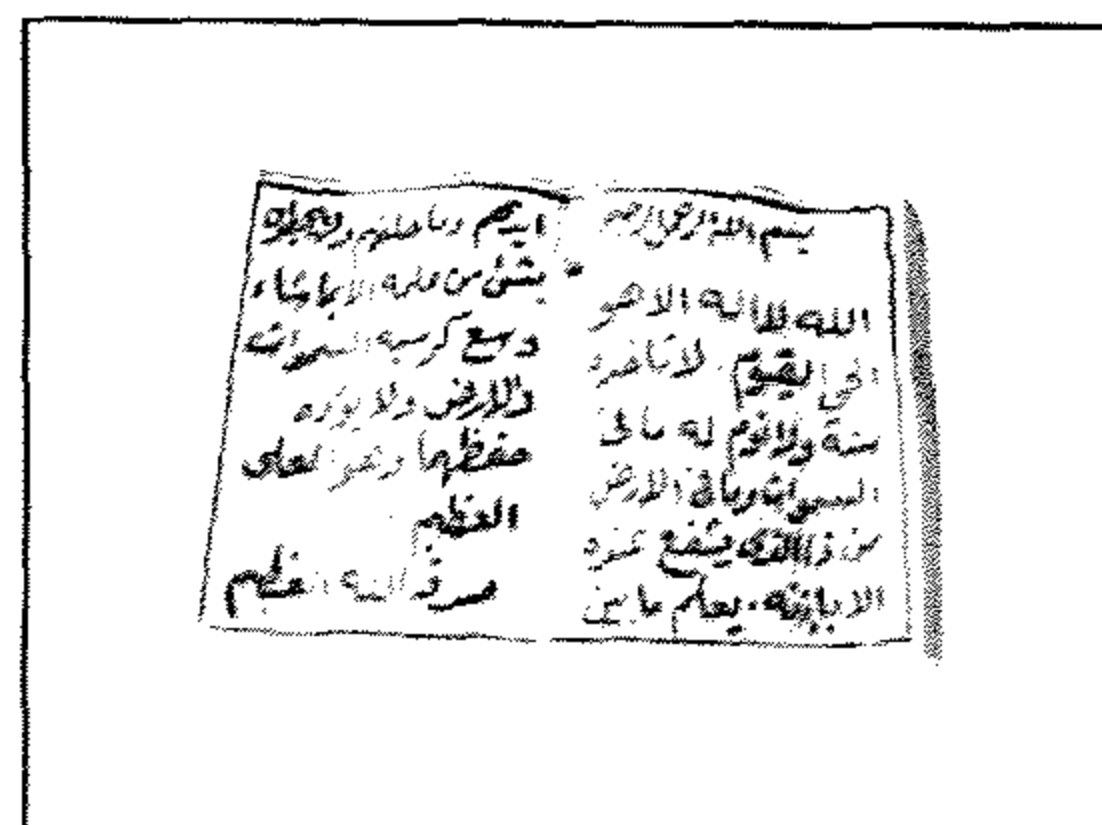 بسم الله الرحمن الرحيم
الله لا اله الا هو
الحي القيوم لا تاخذه
سنة ولا نوم له ما فى
السموات وما فى الارض
من ذا الذى يشفع عنده
الا باذنه يعلم ما بين
ايديهم وما خلفهم ولا يحيطون
بشئ من علمه الا بما شاء
وسع كرسيه السموات
والارض ولا يؤده
حفظهما وهو العلى
العظيم
صدق الله العظيم